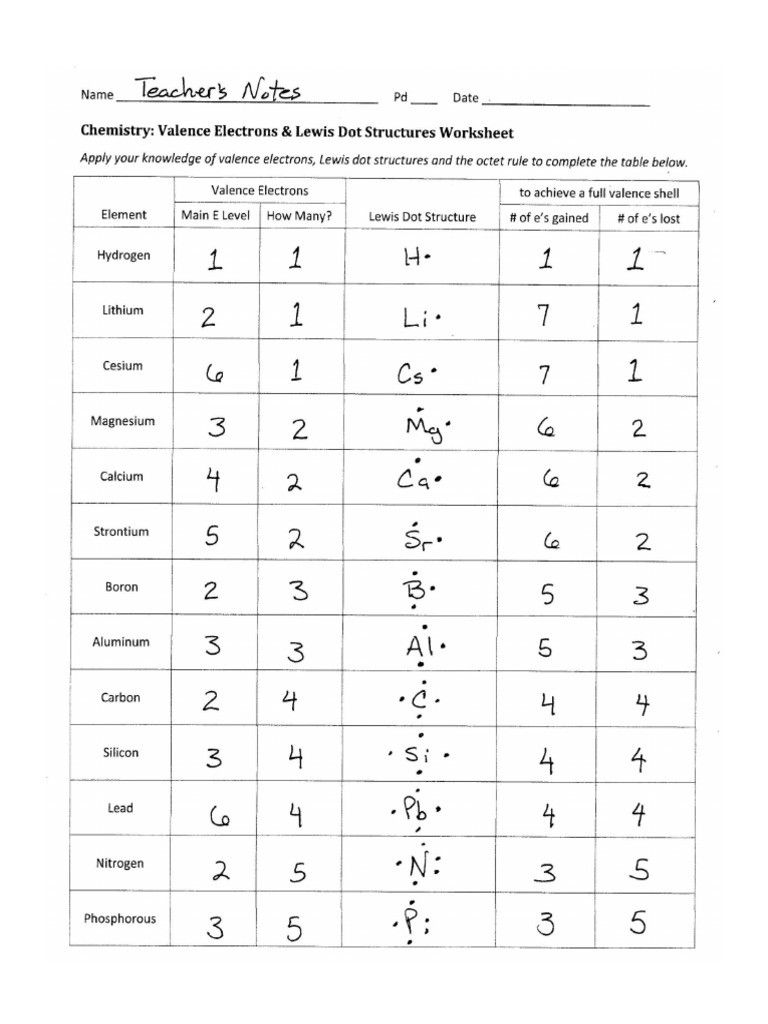 Name Teacher's Notes Pd Date
Chemistry: Valence Electrons & Lewis Dot Structures Worksheet
Apply your knowledge of valence electrons, Lewis dot structures and the octet rule to complete the table below.
Valence Electrons to achieve a full valence shell
Element Main E Level How Many? Lewis Dot Structure # of e's gained # of e's lost
Hydrogen 1 1 H 1 1
Lithium 2 1 Li 7 1
Cesium 6 1 Cs 7 1
Magnesium 3 2 Mg 6 2
Calcium 4 2 Ca 6 2
Strontium 5 2 Sr 6 2
Boron 2 3 B 5 3
Aluminum 3 3 Al 5 3
Carbon 2 4 C 4 4
Silicon 3 4 Si 4 4
Lead 6 4 Pb 4 4
Nitrogen 2 5 N 3 5
Phosphorous 3 5 P 3 5